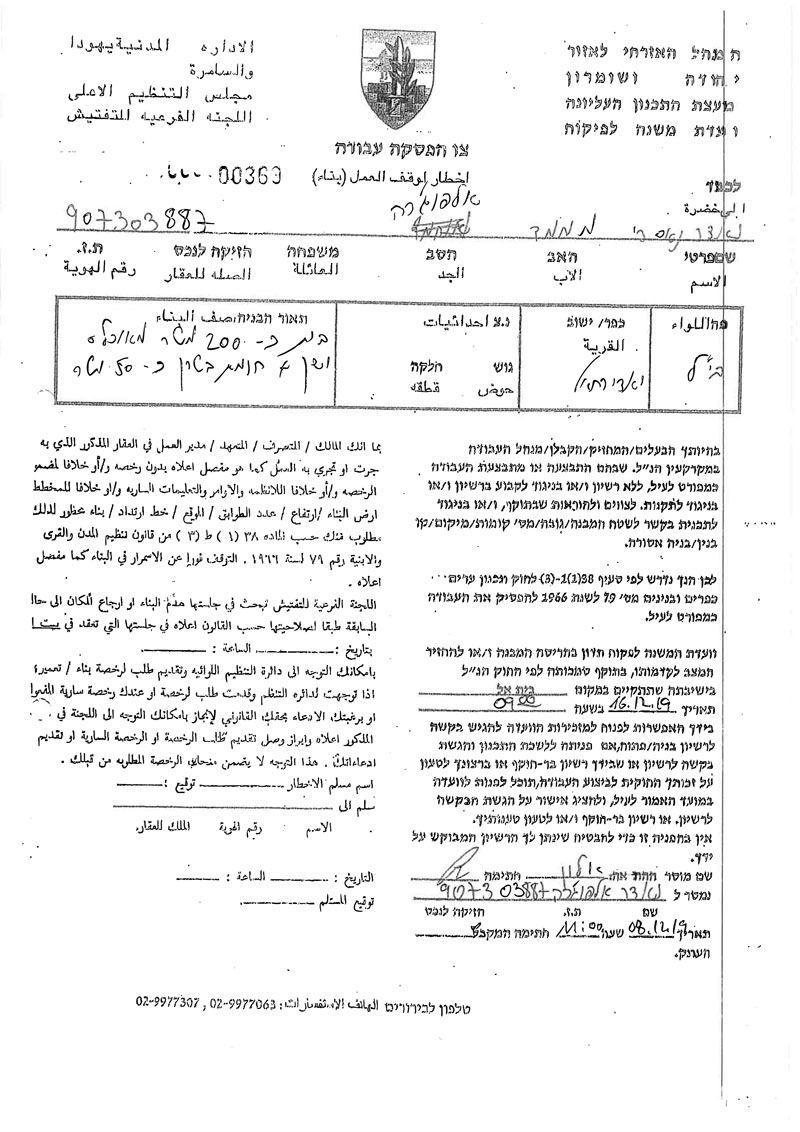 המנהל האזרחי לאזור
יהודה ושומרון
מועצת התכנון העליונה
ועדת משנה לפיקוח
الاداره المدنية يهودا
والسامرة
مجلس التنظيم الاعلى
اللجنه الفرعيه للتفتيش
צו הפסקת עבודה
اخطار لوقف العمل (بناء)
00363
לכבוד
الى حضرة
מחמד
907303887
שם פרטי האב הסב משפחה הזיקה לנכס ת.ז.
الاسم الاب الجد العائلة الصله للعقار رقم الهوية
פח اللواء
כפר/ ישוב
القرية
נ.צ احداثيات
גוש חלקה
حوض قطعه
תאור הבניה, وصف البناء
בית כ- 200 מטר מאוכלס
חומת בטון כ- 50 מטר
בהיותך הבעלים/המחזיק/הקבלן/מנהל העבודה
במקרקעין הנ"ל. שבהם התבצעה או מתבצעת העבודה
כמפורט לעיל, ללא רשיון ו/או בניגוד לקבוע ברשיון ו/או
בניגוד לתקנות. לצווים ולהוראות שבתוקף, ו/או בניגוד
לתכנית בקשר לשטח המבנה/גובה/מס' קומות/מיקום/קו
בנין/בניה אסורה.
לכן הנך נדרש לפי סעיף 38(1)-(3) לחוק תכנון ערים
כפרים ובנינים מס' 79 לשנת 1966 להפסיק את העבודה
כמפורט לעיל.
וועדת המשנה לפקוח תדון בהריסת המבנה ו/או להחזיר
המצב לקדמותו, בתוקף סמכותה לפי החוק הנ"ל
בישיבתה שתתקיים במקום בית אל
תאריך 16.12.19 בשעה 09:00
בידך האפשרות לפנות למזכירות הוועדה להגיש בקשה
לרשיון בניה/פתוח, אם פניתה ללשכת התכנון והגשת
בקשה לרשיון או שבידך רשיון בר-תוקף או ברצונך לטעון
על זכותך החוקית לביצוע העבודה, תוכל לפנות לוועדה
במועד האמור לעיל, ולהציג אישור על הגשת הבקשה
לרשיון. או רשיון בר-תוקף ו/או לטעון טענותיך.
אין בהפניה זו כדי להבטיח שינתן לך הרשיון המבוקש על
ידך.
שם מוסר ההתראה: אילון חתימה
נמסר ל 907303887
שם ת.ז. הזיקה לנכס
תאריך 08.12.19 שעה 11:00 חתימה המקבל
העתק.
بما انك المالك / المتصرف / المتعهد / مدير العمل في العقار المذكور الذي به
جرت او تجري به العمل كما هو مفصل اعلاه بدون رخصه و/أو خلافا لمضمون
الرخصه و/أو خلافا للانظمه والاوامر والتعليمات الساريه و/او خلافا للمخطط
ارض البناء /ارتفاع / عدد الطوابق / الموقع / خط ارتداد / بناء محظور لذلك
مطلوب منك حسب الماده ٣٨ (١) ط (٣) من قانون تنظيم المدن والقرى
والابنية رقم ٧٩ لسنة ١٩٦٦ . التوقف فورا عن الاسمرار في البناء كما مفصل
اعلاه .
اللجنة الفرعية للتفتيش تبحث في جلستها هدم البناء او ارجاع المكان الى حالته
السابقة طبقا لصلاحيتها حسب القانون اعلاه في جلستها التي تعقد في
بتاريخ : الساعة :
بامكانك التوجه الى دائرة التنظيم اللوائيه وتقديم طلب لرخصة بناء / تعمير؛
اذا توجهت لدائره التنظم وقدمت طلب لرخصة او عندك رخصة سارية المفعول
او برغبتك الادعاء بحقك القانوني لإنجاز بامكانك التوجه الى اللجنة في
المذكور اعلاه وإبراز وصل تقديم طلب الرخصة او الرخصة السارية او تقديم
ادعاءاتك . هذا التوجه لا يضمن منحك الرخصة المطلوبه من قبلك .
اسم مسلم الاخطار توقيع :
سلم الى
الاسم رقم الهوية الملك للعقار.
التاريخ : الساعة :
توقيع المستلم
טלפון לבירורים الهاتف الاستفسارات: 02-9977063 , 02-9977307